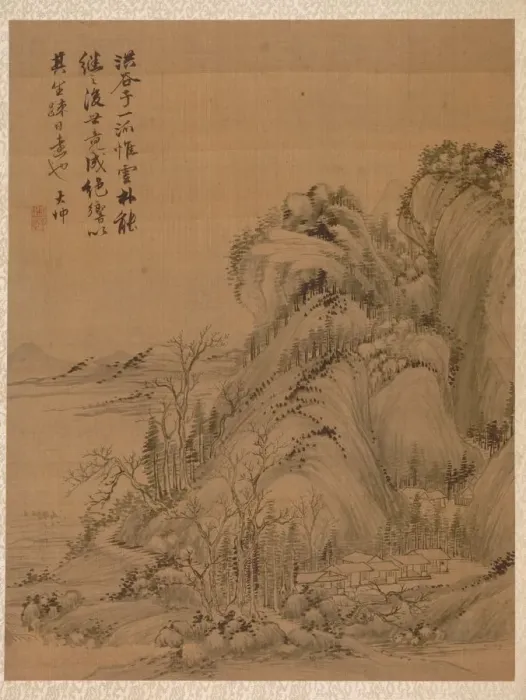 洪谷子一派惟雲林能
継之後世竟成絶響以
其生疎日遠也 大坤